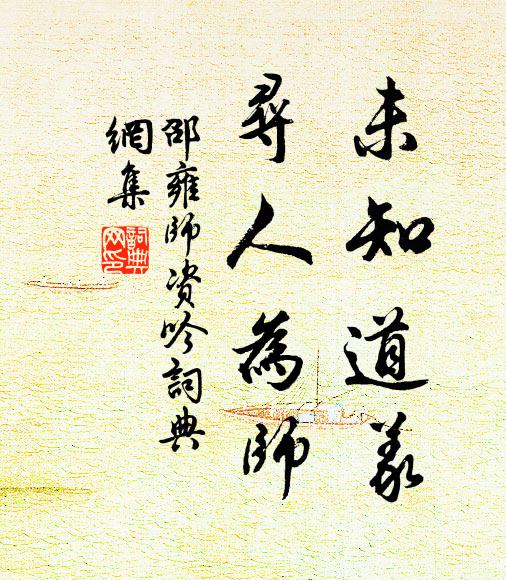 未知道義
尋人為師
邵雍師資吟詞典
網集
詞典
网印